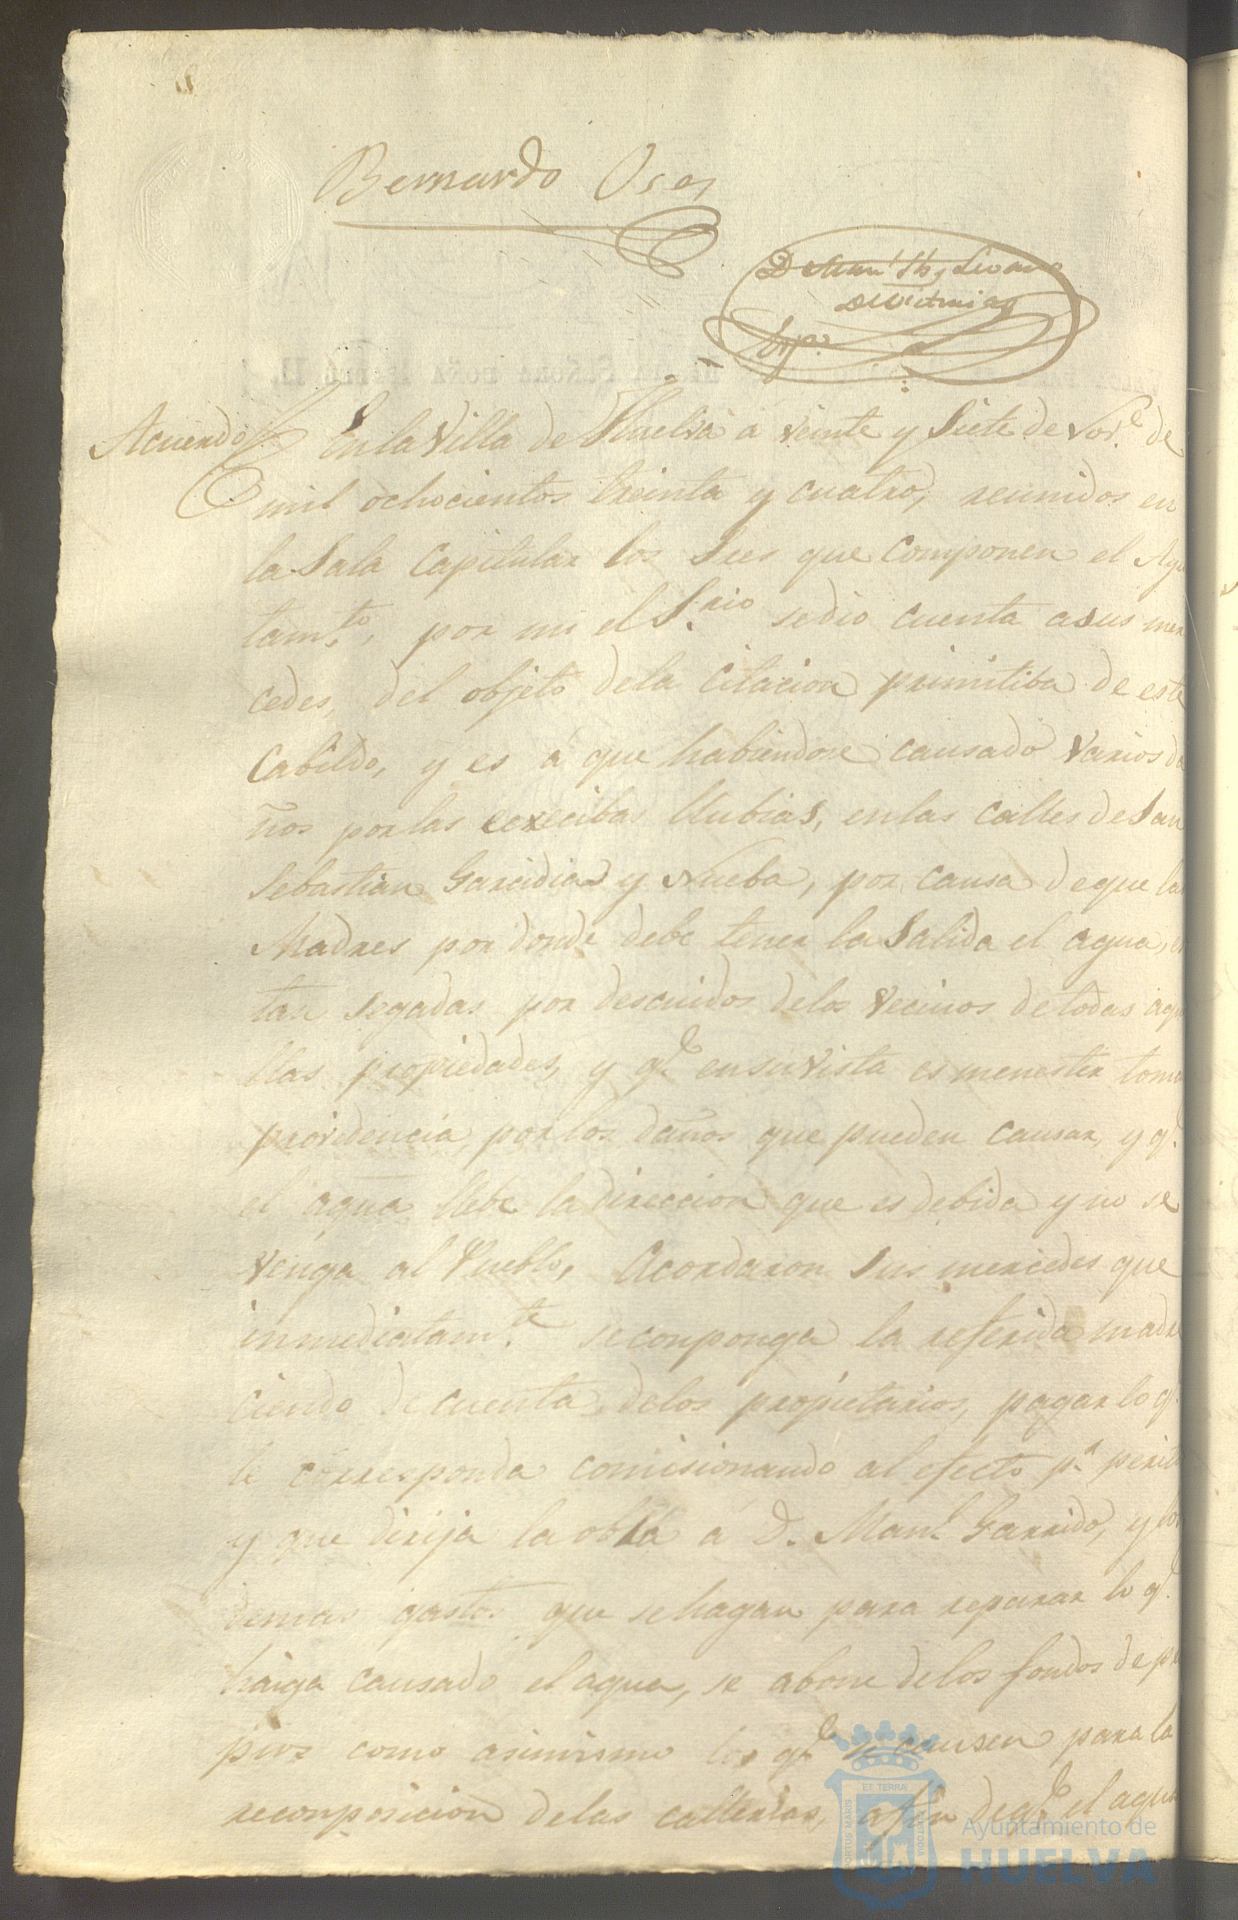 Bernardo Oses
Acuerdo En la Villa de Huelva á veinte y siete de Nov.e de
mil ochocientos treinta y cuatro, reunidos en
la Sala Capitular los Sres que componen el Ayu
tam.to, por mi el S.rio se dio cuenta a sus mer
cedes, del objeto de la citacion primitiba de este
Cabildo, y es á que habiendose causado varios da
ños por las ecxecibas llubias, en las calles de San
Sebastian Garcidia y Nueba, por causa de que las
Madres por donde debe tener la salida el agua, es
tan segadas por descuidos de los vecinos de todas aque
llas propiedades, y q.e en su vista es menester tomar
providencia, por los daños que pueden causar, y q.e
el agua llebe la direccion que es debida y no se
venga al Pueblo, Acordaron sus mercedes que
inmediatam.te se conponga la referida madre
ciendo de cuenta de los propietarios, pagar lo q.e
le corresponda comisionando al efecto p.a perito
y que dirija la obra á D. Man.l Garrido, y los
demas gastos que se hagan para reparar lo q.e
haiga causado el agua, se abone de los fondos de pro
pios como asimismo los q.e se causen para la
reconposicion de las callerias, afin de q.e el agua
ET TERRAE
PORTUS MARIS
CUSTODIA
Ayuntamiento de
HUELVA